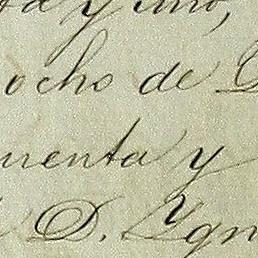 y uno,
ocho de
uenta y
D. Ygn